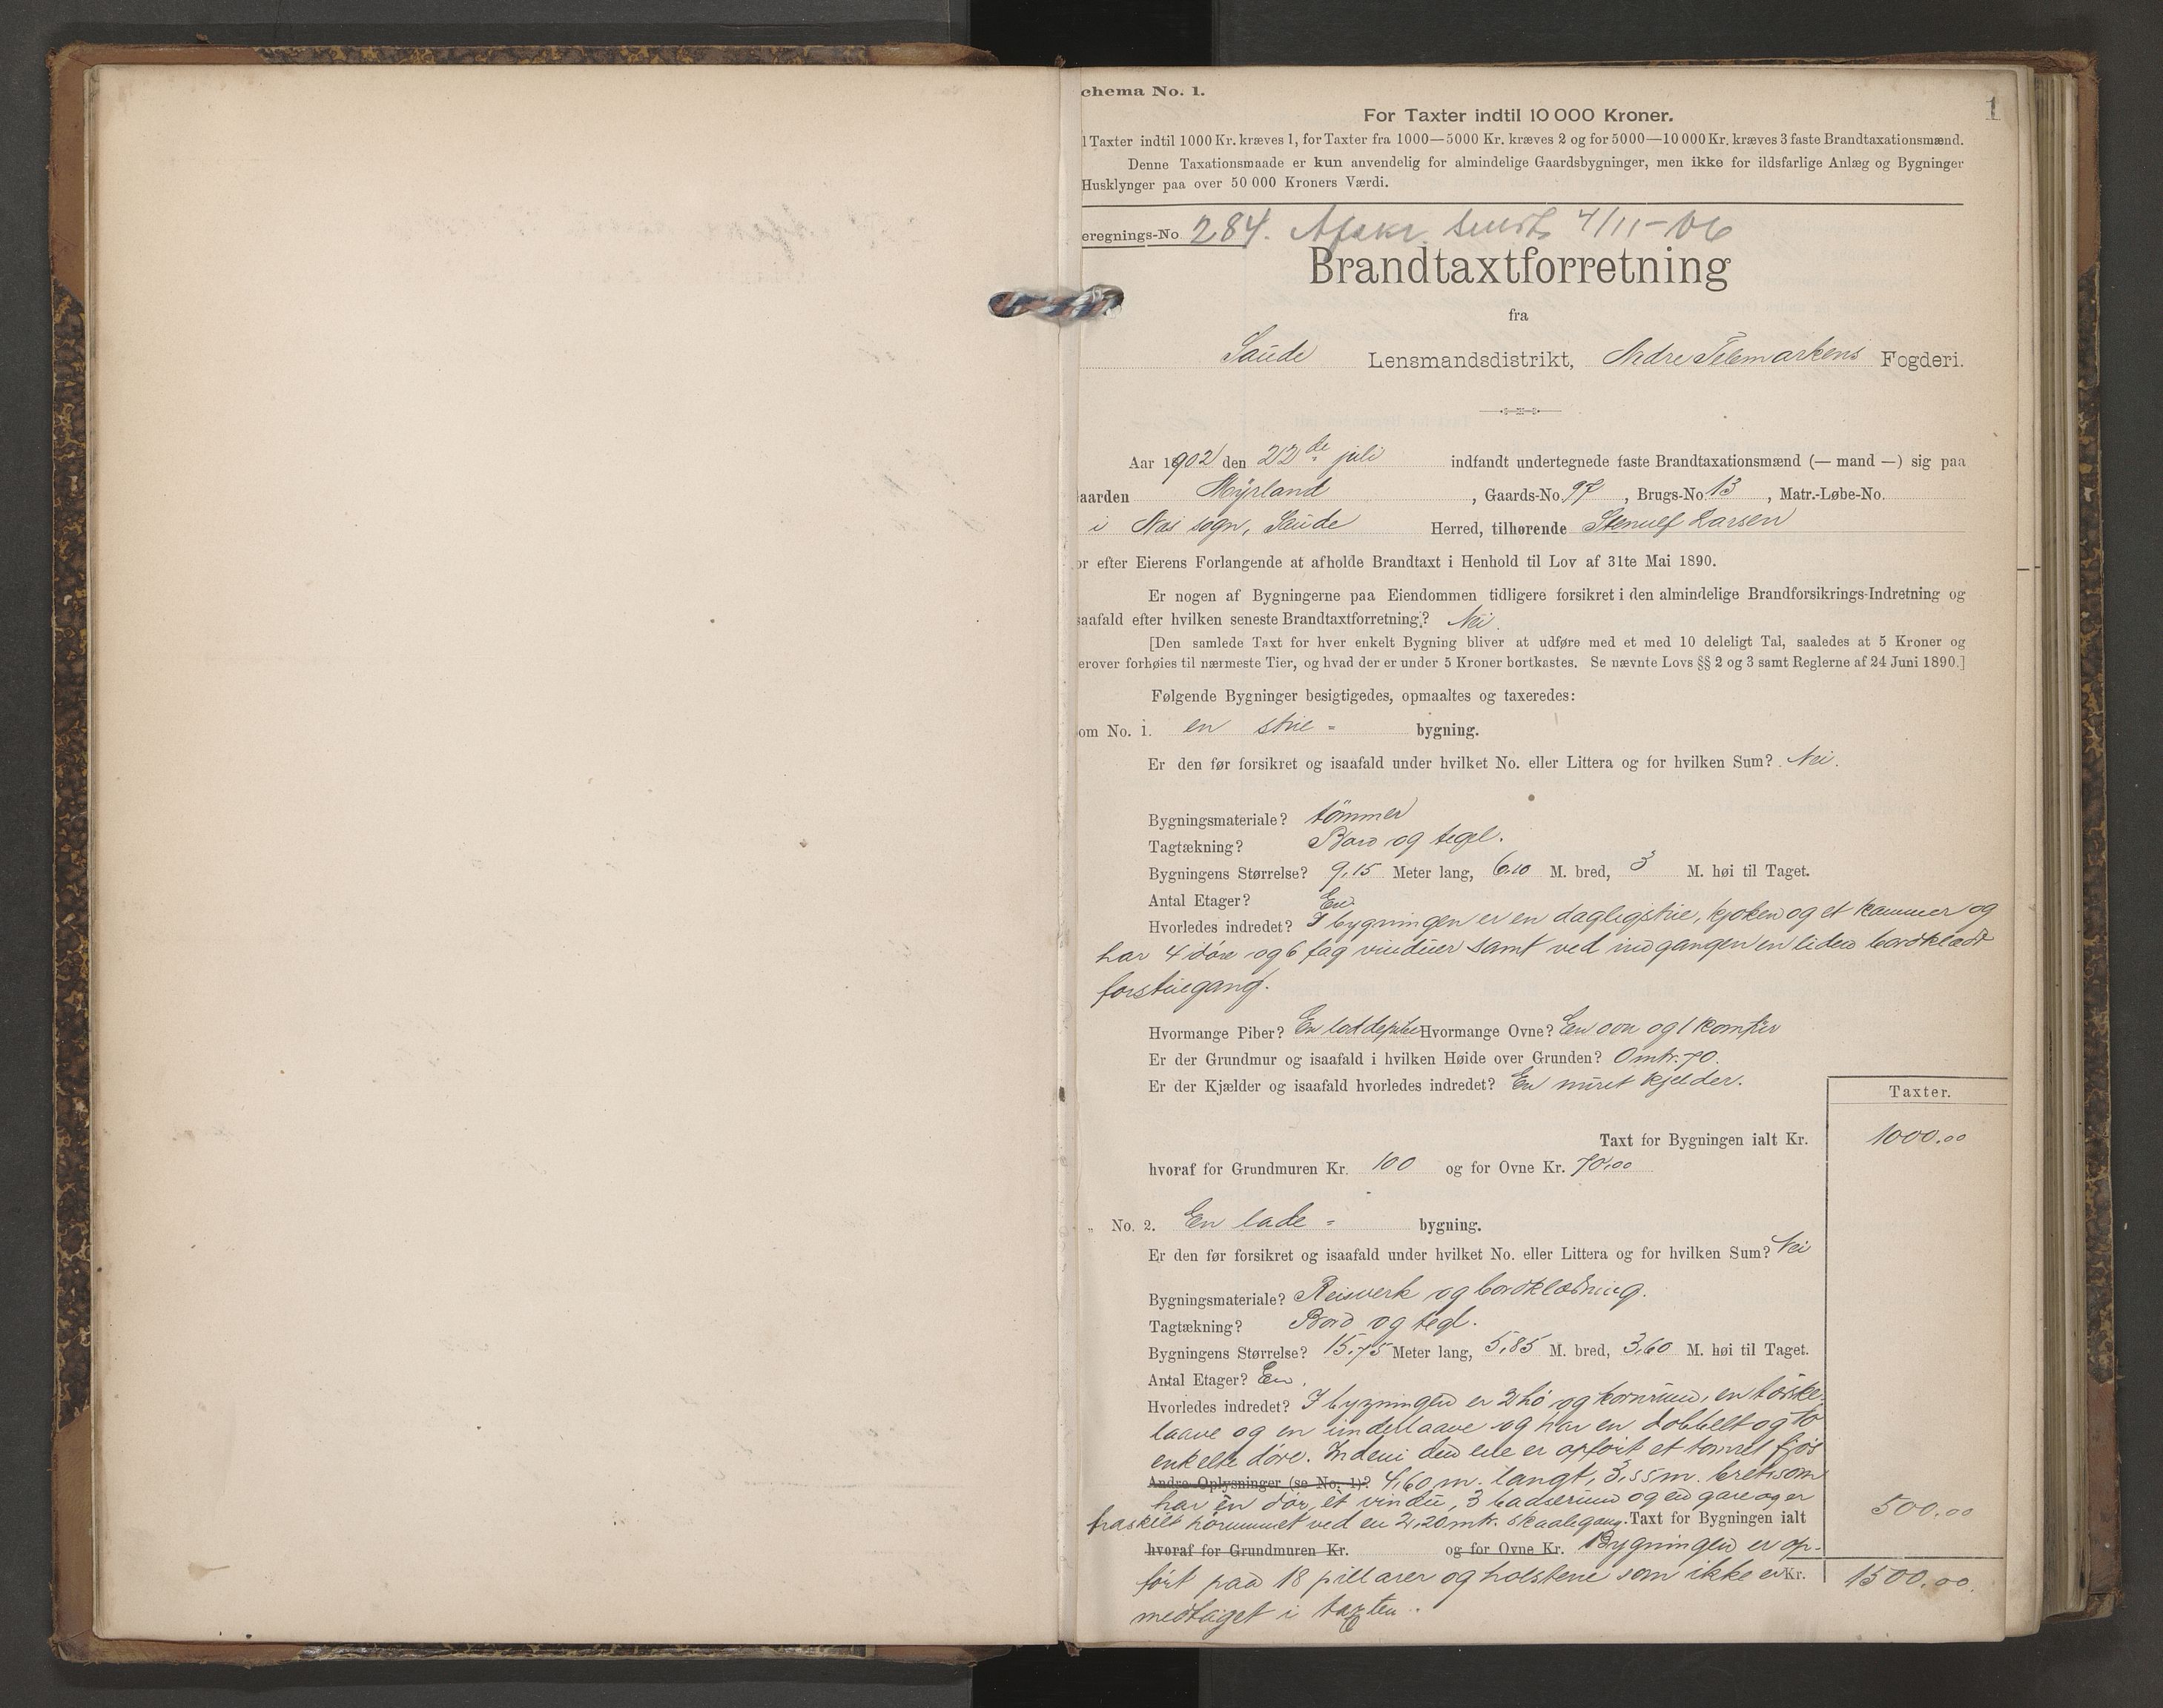 chema No. 1.
1
For Taxter indtil 10 000 Kroner.
l Taxter indtil 1000 Kr. kræves 1, for Taxter fra 1000—5000 Kr. kræves 2 og for 5000—10 000 Kr. kræves 3 faste Brandtaxationsmænd.
Denne Taxationsmaade er kun anvendelig for almindelige Gaardsbygninger, men ikke for ildsfarlige Anlæg og Bygninger
Husklynger paa over 50 000 Kroners Værdi.
eregnings-No 284. Afskr. sendt 4/11-06
Brandtaxtforretning
fra
Saude Lensmandsdistrikt, Nedre Telemarkens Fogderi.
Aar 1902 den 22de juli indfandt undertegnede faste Brandtaxationsmænd (— mand —) sig paa
aarden Myrland, Gaards-No 97, Brugs-No. 13, Matr.-Løbe-No.
i Nes sogn, Saude Herred, tilhørende Stenulf Larsen
or efter Eierens Forlangende at afholde Brandtaxt i Henhold til Lov af 31te Mai 1890.
Er nogen af Bygningerne paa Eiendommen tidligere forsikret i den almindelige Brandforsikrings-Indretning og
saafald efter hvilken seneste Brandtaxtforretning? Nei.
[Den samlede Taxt for hver enkelt Bygning bliver at udføre med et med 10 deleligt Tal, saaledes at 5 Kroner og
erover forhøies til nærmeste Tier, og hvad der er under 5 Kroner bortkastes. Se nævnte Lovs §§ 2 og 3 samt Reglerne af 24 Juni 1890.]
Følgende Bygninger besigtigedes, opmaaltes og taxeredes:
om No. 1. en stue= bygning.
Er den før forsikret og isaafald under hvilket No. eller Littera og for hvilken Sum? Nei.
Bygningsmateriale? tömmer
Tagtækning? Bord og tegel.
Bygningens Størrelse? 9,15 Meter lang, 6.10 M. bred, 3 M. høi til Taget.
Antal Etager? En
Hvorledes indredet? I bygningen er en dagligstue, kjøken og et kammer og
har 4 döre og 6 fag vinduer samt ved indgangen en liden bordklædt
forstuegang.
Hvormange Piber? En loddepibe Hvormange Ovne? En ovn og 1 komfur
Er der Grundmur og isaafald i hvilken Høide over Grunden? 0 mtr. 70.
Er der Kjælder og isaafald hvorledes indredet? En muret kjelder.
Taxter.
Taxt for Bygningen ialt Kr. 1000.00
hvoraf for Grundmuren Kr. 100 og for Ovne Kr. 70,00
„ No. 2. En lade= bygning.
Er den før forsikret og isaafald under hvilket No. eller Littera og for hvilken Sum? Nei
Bygningsmateriale? Reisverk og bordklædning.
Tagtækning? Bord og tegl.
Bygningens Størrelse? 15,75 Meter lang, 5,85 M. bred, 3,60 M. høi til Taget.
Antal Etager? En.
Hvorledes indredet? I bygningen er 2 hö og kornrum, en tørske-
laave og en underlaave og har en dobbelt og to
enkelte döre. Indeni den ene er opfört et tømret fjös
Andre Oplysninger (se No. 1)? 4,60 m. langt, 3,55 m. bret, som
har en dör, et vindu, 3 baaserum og en gare og er
fraskilt hörummet ved en 2,20 mtr. skaalegang. Taxt for Bygningen ialt 500.00
hvoraf for Grundmuren Kr. og for Ovne Kr. Bygningen er op-
fört paa 18 pillarer og holstene som ikke er Kr. 1500.00.
medtaget i taxten.